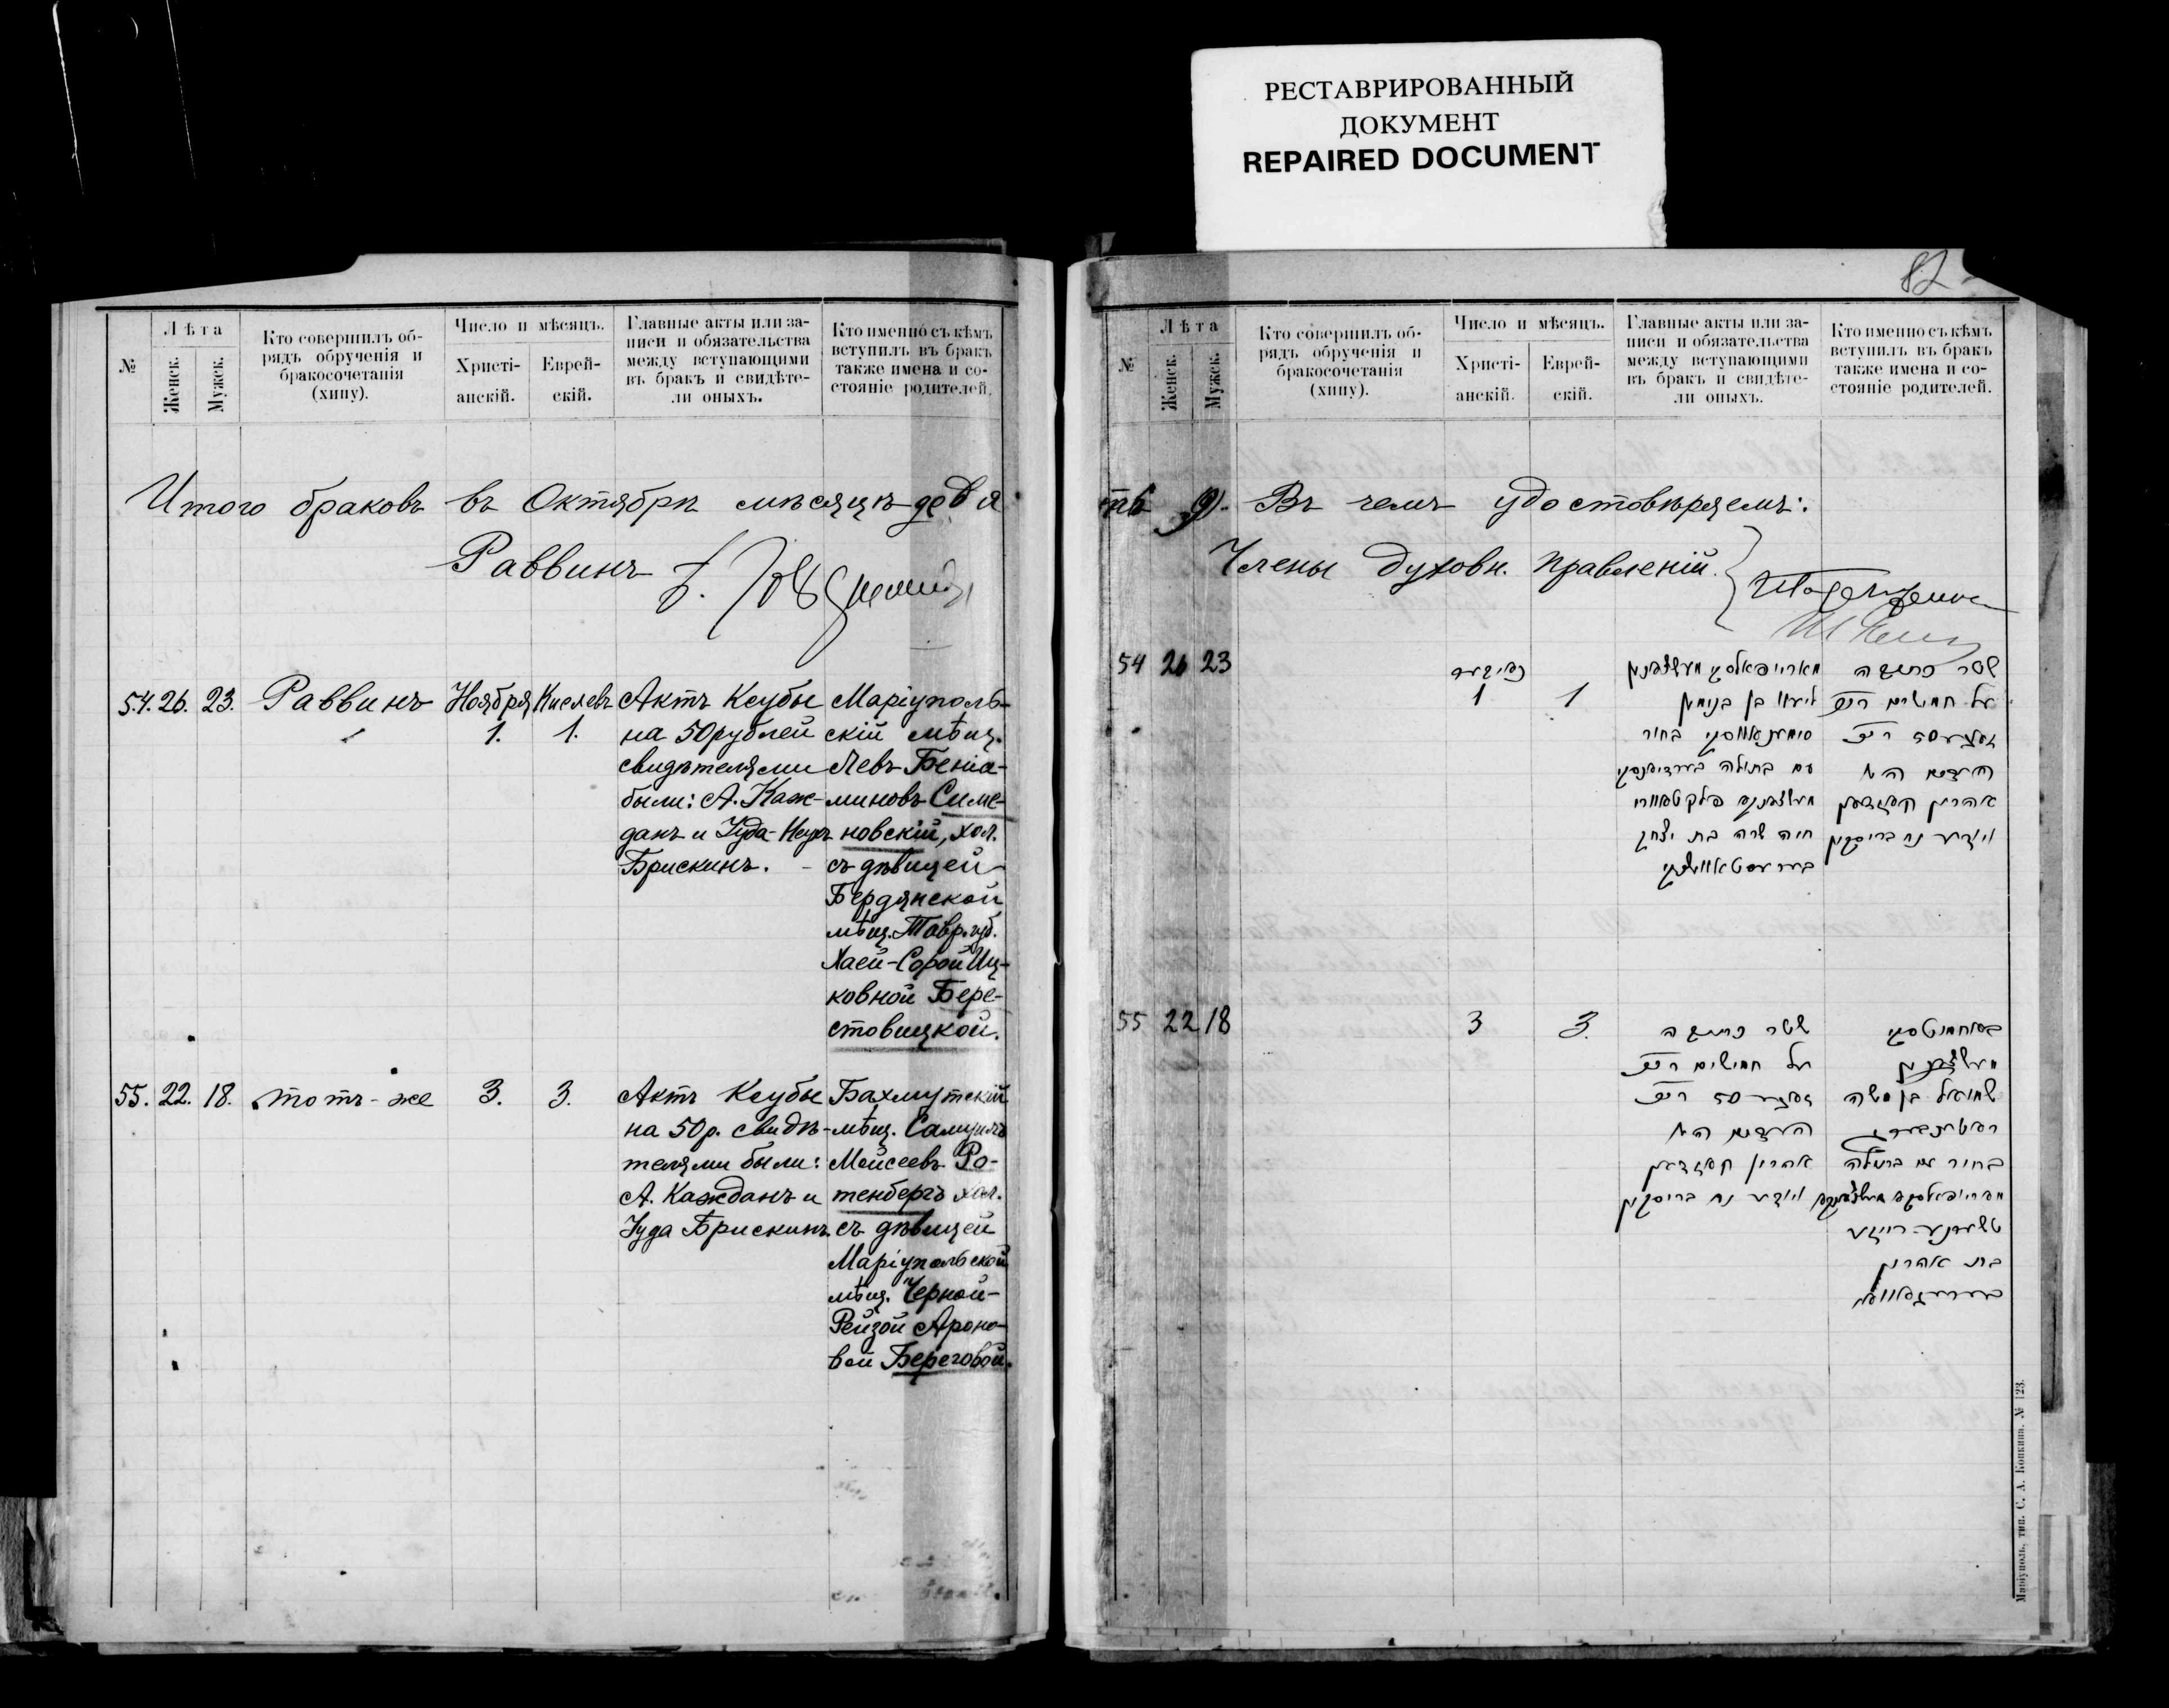 РЕСТАВРИРОВАННЫЙ
ДОКУМЕНТ
REPAIRED DOCUMENT
82
№
Лѣта
Женск.
Мужск.
Кто совершилъ об-
рядъ обрученія и
бракосочетанія
(хипу).
Число и мѣсяцъ.
Христі-
анскій.
Еврей-
скій.
Главные акты или за-
писи и обязательства
между вступающими
въ бракъ и свидѣте-
ли оныхъ.
Кто именно съ кѣмъ
вступилъ въ бракъ
также имена и со-
стояніе родителей.
Итого браковъ въ Октябрѣ мѣсяцѣ девя
Раввинъ
54. 26. 23. Раввинъ
Ноября
1.
Кислевъ
1.
Актъ Ксубы
на 50 рублей
свидѣтелями
были: А. Каж-
данъ и Іуда-Неухъ
Брискинъ.
Маріуполь-
скій мѣщ.
Левъ Беніа-
миновъ Симе-
новскій, хол.
съ дѣвицей
Бердянской
мѣщ. Тавр. губ.
Хаей-Сорой Иц-
ковной Бере-
стовицкой.
55. 22. 18. тотъ-же
3.
3.
Актъ Ксубы
на 50 р. свидѣ-
телями были:
А. Кажданъ и
Іуда Брискинъ.
Бахмутскій
мѣщ. Самуилъ
Мойсеевъ Ро-
тенбергъ хол.
съ дѣвицей
Маріупольской
мѣщ. Черной-
Рейзой Ароно-
вой Береговой.
№
Лѣта
Женск.
Мужск.
Кто совершилъ об-
рядъ обрученія и
бракосочетанія
(хипу).
Число и мѣсяцъ.
Христі-
анскій.
Еврей-
скій.
Главные акты или за-
писи и обязательства
между вступающими
въ бракъ и свидѣте-
ли оныхъ.
Кто именно съ кѣмъ
вступилъ въ бракъ
также имена и со-
стояніе родителей.
ть 9). Въ чемъ удостовѣряемъ:
Члены духовн. правленій.
54 26 23
1
1
שטר כתובה
על חמישים
50
העדים
אהרון קאזדאן
יודע נח בריסקין
ליעוו בן בנימין
בחור
עם בתולה
חיה שרה בת יצחק
55 22 18
3
3.
שטר כתובה
על חמישים
50
העדים
אהרון קאזדאן
יודע נח בריסקין
שמואל בן משה
בחור עם בתולה
בת אהרון
Маріуполь, тип. С. А. Копкина. № 123.